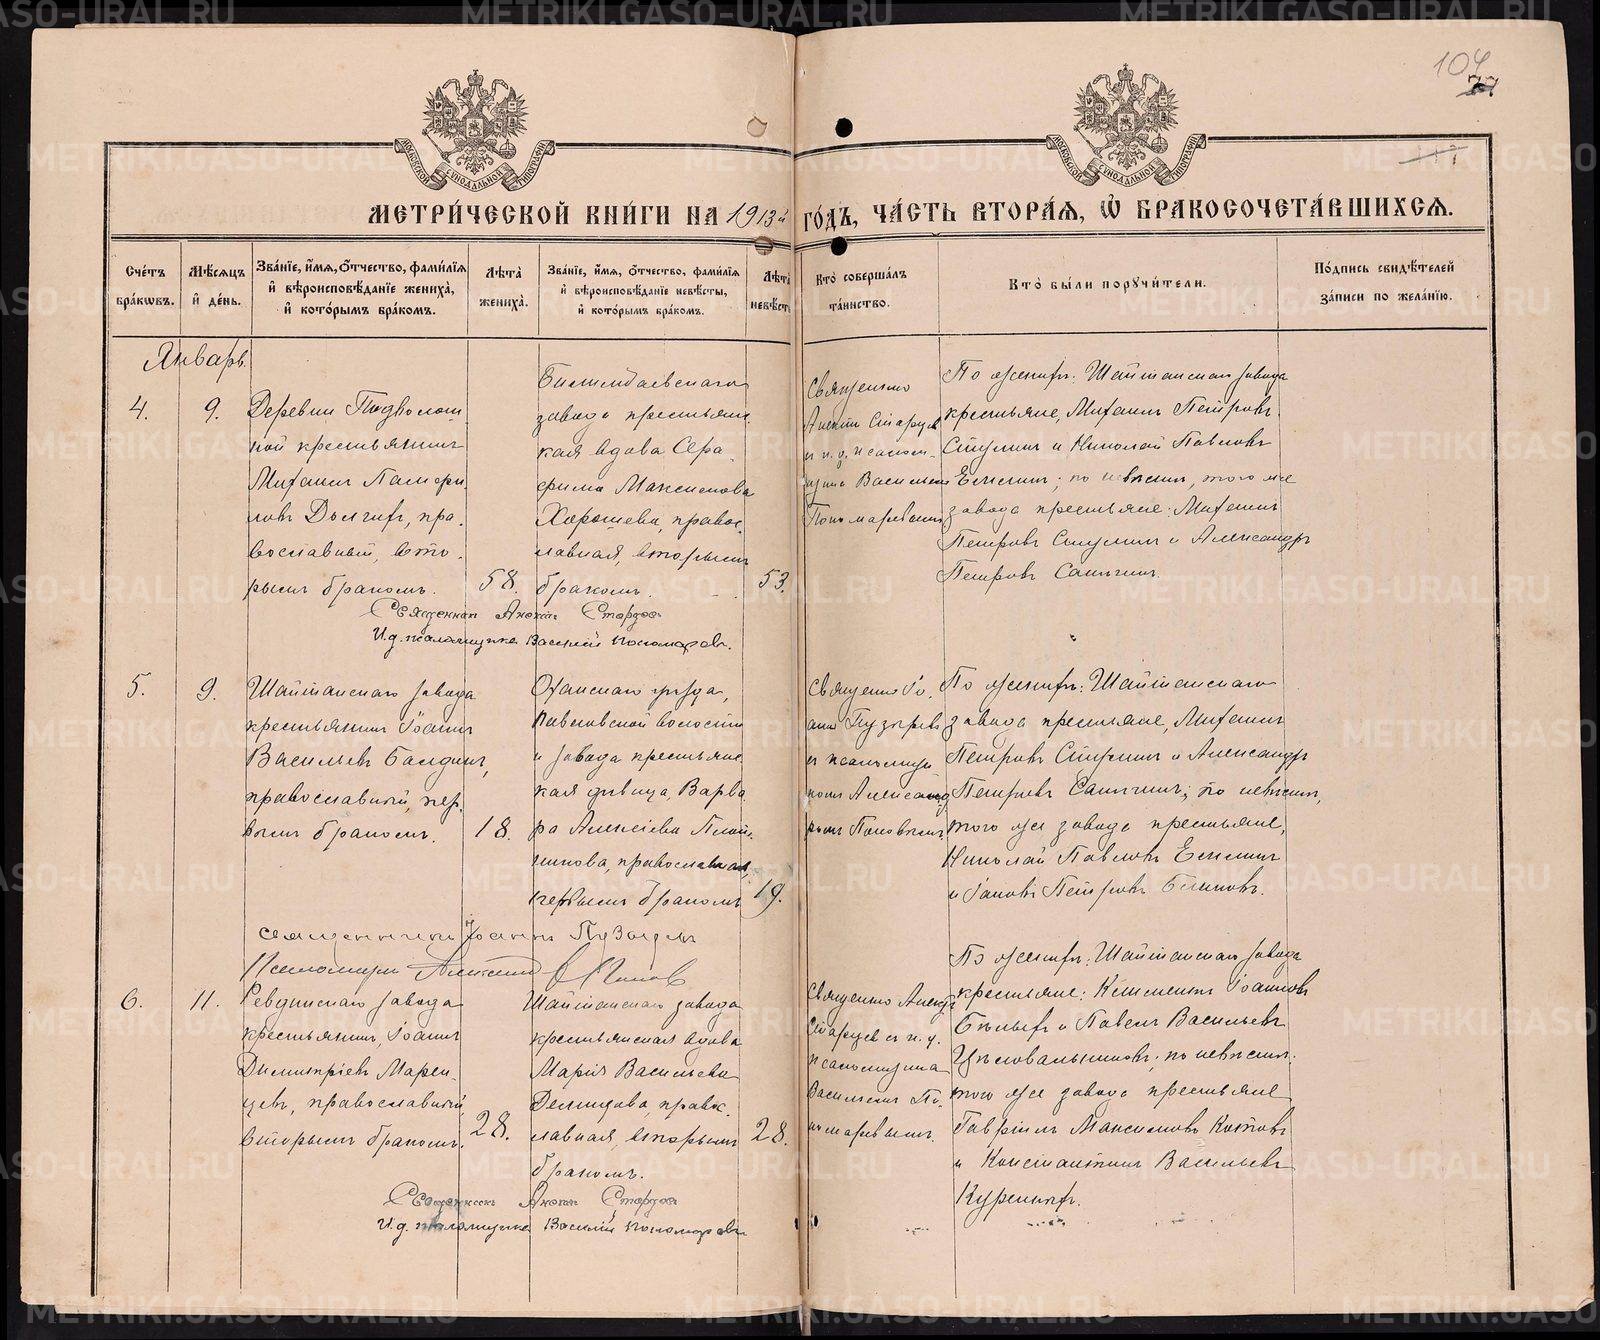 104
77
МОСКОВСКОЙ СѴНОДАЛЬНОЙ ТИПОГРАФІИ
МОСКОВСКОЙ СѴНОДАЛЬНОЙ ТИПОГРАФІИ
МЕТРИ́ЧЕСКОЙ КНИ́ГИ НА 1913й ГО́ДЪ, ЧА́СТЬ ВТОРА́Ѧ, Ѽ БРАКОСОЧЕТА́ВШИХСѦ.
Сче́тъ бра́кѡвъ.
Мѣ́сѧцъ и҆ де́нь.
Зва́нїе, и҆́мѧ, ѻ҆́тчество, фами́лїѧ и҆ вѣроисповѣ́данїе жениха̀, и҆ кото́рымъ бра́комъ.
Лѣ́та жениха̀.
Зва́нїе, и҆́мѧ, ѻ҆́тчество, фами́лїѧ и҆ вѣроисповѣ́данїе невѣ́сты, и҆ кото́рымъ бра́комъ.
Лѣ́та невѣ́сты
Кто̀ соверша́лъ та́инство.
Кто̀ бы́ли порꙋчи́тели.
По́дпись свидѣ́телей за́писи по жела́нїю.
Январь.
4.
9.
Деревни Подволош
ной крестьянинъ
Михаилъ Памфи
ловъ Долгихъ, пра
вославный, вто
рымъ бракомъ.
58.
Билимбаевскаго
завода крестьянс
кая вдова Сера
фима Максимова
Хорошева, правос
лавная, вторымъ
бракомъ.
53.
Священно
Анкти Старцев
и и. д. псалом
щика Василiем
Пономаревымъ
По женихѣ: Шайтанскаго завода
крестьяне, Михаилъ Петровъ
Стулинъ и Николай Павловъ
Еремин; по невѣстѣ, того же
завода крестьяне: Михаилъ
Петровъ Стулинъ и Александръ
Петровъ Санчинъ.
Священник Старцев
И.д. псаломщика Василій Пономаревъ.
5.
9.
Шайтанскаго завода
крестьянинъ Іоаннъ
Васильевъ Балдинъ,
православный, пер
вымъ бракомъ.
18.
Оханскаго уѣзда,
Павловской волости
и завода крестьянс
кая дѣвица, Варва
ра Алексѣева Плот
никова, православная,
первымъ бракомъ
19.
Священно Іо
анн Пузырев
с псаломщи
комъ Александ
ромъ Поповымъ.
По женихѣ: Шайтанскаго
завода крестьяне, Михаилъ
Петровъ Стулинъ и Александръ
Петровъ Санчинъ; по невѣстѣ,
того же завода крестьяне,
Николай Павловъ
и Іаковъ Петровъ Блиновъ.
Священникъ Іоаннъ Пузырев
Псаломщик Александръ Попов
6.
11.
Ревдинскаго завода
крестьянинъ, Іоаннъ
Димитріевъ Марен
цевъ, православный,
вторымъ бракомъ.
28.
Шайтанскаго завода
крестьянская вдова
Марія Васильева
Демидова, правос
лавная, вторымъ
бракомъ.
28.
Священно
Старцев с и. д.
псаломщика
Василiемъ По
номаревымъ.
По женихѣ: Шайтанскаго завода
крестьяне: Климентъ Іоанновъ
Бѣлыхъ и Павелъ Васильевъ
Цѣловальниковъ; по невѣстѣ:
того же завода крестьяне
Гавріилъ Максимовъ Котовъ
и Константинъ Васильевъ
Куренныхъ.
Священник Старцев
И.д. псаломщика Василій Пономаревъ
METRIKI.GASO-URAL.RU